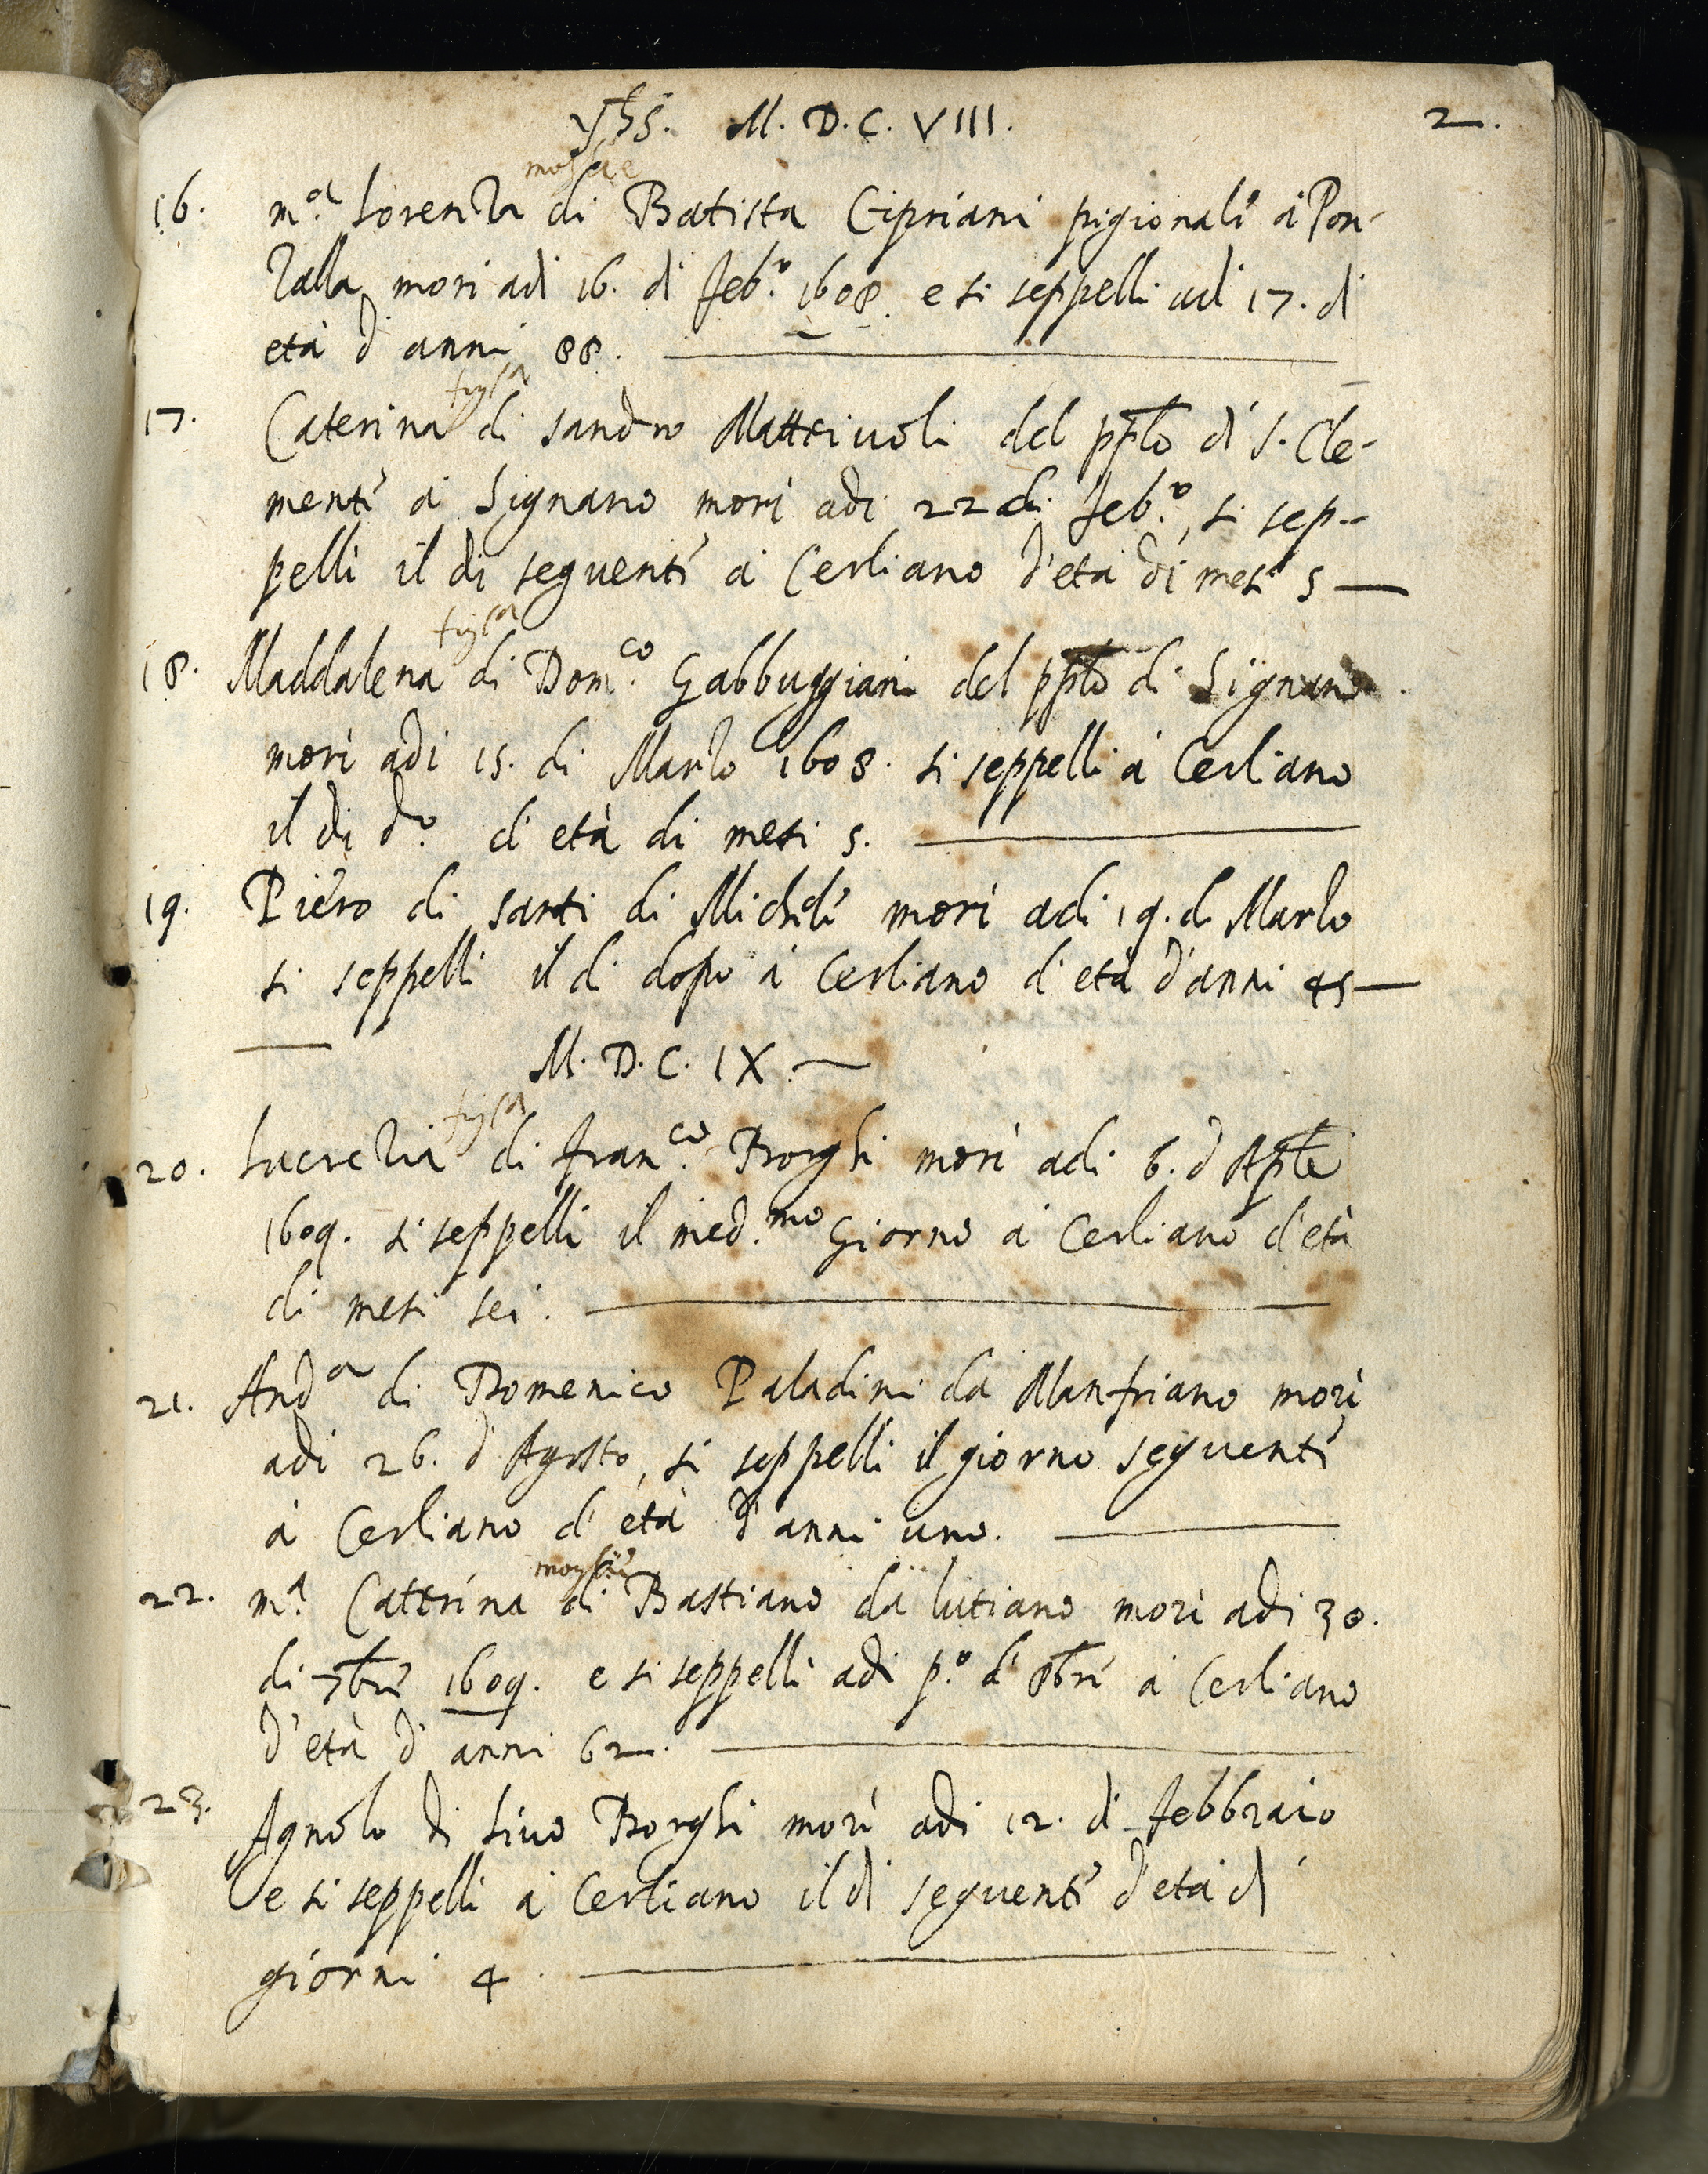 yhs. M. D. C. VIII. 2.
moglie
16. m.ª Lorenza di Batista Cipriani pigionale à Pon-
zalla morì adi 16. di feb.º 1608. e si seppellì adi 17. di
età d'anni 88.
figlia
17. Caterina di Sandro Matteivoli del pplo di S. Cle-
mente à Signano morì adi 22 di feb.º, si sep-
pellì il dì seguente à Cerliano d'età di mesi 5
figlia
18. Maddalena di Dom.co Gabbuggiani del pplo di Signano
morì adi 15. di Marzo 1608. si seppellì à Cerliano
il dì d.º d'età di mesi 5.
19. Piero di Santi di Michele morì adi 19. di Marzo
si seppellì il dì dopo à Cerliano d'età d'anni 45
M. D. C. IX
figlia
20. Lucrezia di Fran.co Borghi morì adi 6. d'Aple
1609. si seppellì il med.mo Giorno à Cerliano d'età
di mesi sei.
21. Andª di Domenico Paladini da Manfriano morì
adi 26. d'Agosto, si seppellì il giorno seguente
à Cerliano d'età d'anni uno.
moglie
22. m.ª Caterina di Bastiano da lutiano morì adi 30.
di 7bre 1609. e si seppellì adi p.º d'8bre à Cerliano
d'età d'anni 62.
23. Agnolo di Livo Borghi morì adi 12. di febbraio
e si seppellì à Cerliano il dì seguente d'età di
giorni 4.